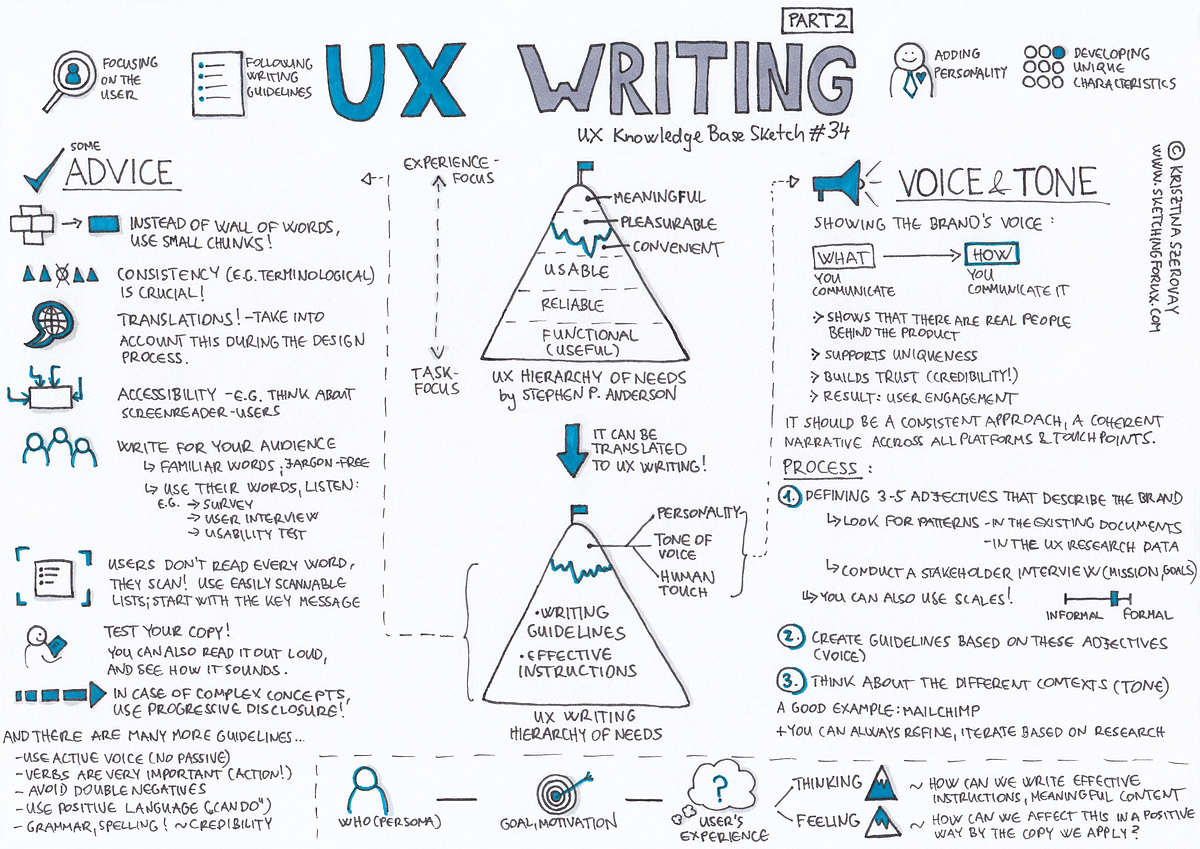 PART 2
UX WRITING
UX Knowledge Base Sketch #34
FOCUSING
ON THE
USER
FOLLOWING
WRITING
GUIDELINES
ADDING
PERSONALITY
DEVELOPING
UNIQUE
CHARACTERISTICS
© KRISZTINA SZEROVAY
WWW.SKETCHINGFORUX.COM
SOME
ADVICE
INSTEAD OF WALL OF WORDS,
USE SMALL CHUNKS!
CONSISTENCY (E.G. TERMINOLOGICAL)
IS CRUCIAL!
TRANSLATIONS! - TAKE INTO
ACCOUNT THIS DURING THE DESIGN
PROCESS.
ACCESSIBILITY - E.G. THINK ABOUT
SCREENREADER-USERS
WRITE FOR YOUR AUDIENCE
↳ FAMILIAR WORDS; JARGON-FREE
↳ USE THEIR WORDS, LISTEN:
E.G. → SURVEY
→ USER INTERVIEW
→ USABILITY TEST
USERS DON'T READ EVERY WORD,
THEY SCAN! USE EASILY SCANNABLE
LISTS; START WITH THE KEY MESSAGE
TEST YOUR COPY!
YOU CAN ALSO READ IT OUT LOUD,
AND SEE HOW IT SOUNDS.
IN CASE OF COMPLEX CONCEPTS,
USE PROGRESSIVE DISCLOSURE!
AND THERE ARE MANY MORE GUIDELINES...
- USE ACTIVE VOICE (NO PASSIVE)
- VERBS ARE VERY IMPORTANT (ACTION!)
- AVOID DOUBLE NEGATIVES
- USE POSITIVE LANGUAGE („CAN DO")
- GRAMMAR, SPELLING! ~ CREDIBILITY
EXPERIENCE-
FOCUS
TASK-
FOCUS
MEANINGFUL
PLEASURABLE
CONVENENT
USABLE
RELIABLE
FUNCTIONAL
(USEFUL)
UX HIERARCHY OF NEEDS
by STEPHEN P. ANDERSON
IT CAN BE
TRANSLATED
TO UX WRITING!
PERSONALITY
TONE OF
VOICE
HUMAN
TOUCH
• WRITING
GUIDELINES
• EFFECTIVE
INSTRUCTIONS
UX WRITING
HIERARCHY OF NEEDS
VOICE & TONE
SHOWING THE BRAND'S VOICE:
WHAT → HOW
YOU
COMMUNICATE
YOU
COMMUNICATE IT
> SHOWS THAT THERE ARE REAL PEOPLE
BEHIND THE PRODUCT
> SUPPORTS UNIQUENESS
> BUILDS TRUST (CREDIBILITY!)
> RESULT: USER ENGAGEMENT
IT SHOULD BE A CONSISTENT APPROACH, A COHERENT
NARRATIVE ACCROSS ALL PLATFORMS & TOUCHPOINTS.
PROCESS:
1. DEFINING 3-5 ADJECTIVES THAT DESCRIBE THE BRAND
↳ LOOK FOR PATTERNS - IN THE EXISTING DOCUMENTS
- IN THE UX RESEARCH DATA
↳ CONDUCT A STAKEHOLDER INTERVIEW (MISSION, GOALS)
↳ YOU CAN ALSO USE SCALES!
INFORMAL FORMAL
2. CREATE GUIDELINES BASED ON THESE ADJECTIVES
(VOICE)
3. THINK ABOUT THE DIFFERENT CONTEXTS (TONE)
A GOOD EXAMPLE: MAILCHIMP
+ YOU CAN ALWAYS REFINE, ITERATE BASED ON RESEARCH
WHO (PERSONA)
GOAL, MOTIVATION
?
USER'S
EXPERIENCE
THINKING
~ HOW CAN WE WRITE EFFECTIVE
INSTRUCTIONS, MEANINGFUL CONTENT
FEELING
~ HOW CAN WE AFFECT THIS IN A POSITIVE
WAY BY THE COPY WE APPLY?